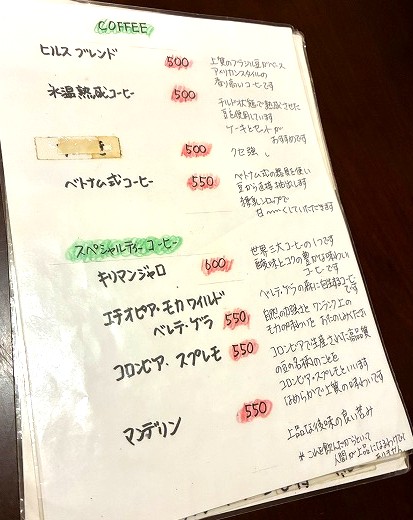 COFFEE
ヒルス ブレンド 500 上質のブラジル豆がベース
アメリカンスタイルの
香り高いコーヒーです
氷温熟成コーヒー 500 チルド状態で熟成させた
豆を使用しています
ケーキとセットが
おすすめです
500 クセ強し
ベトナム式コーヒー 550 ベトナム式の器具を使い
豆から直接抽出します
練乳シロップで
甘〜くしていただきます
スペシャルティーコーヒー
キリマンジャロ 600 世界三大コーヒーの1つです
酸味とコクの豊かな味わい
コーヒーです
エチオピア・モカ ワイルド
ベレテ・ゲラ 550 ベレテ・ゲラの森に自生するコーヒーです
自然の力強さとワンランク上の
モカの味わいをお楽しみください
コロンビア・スプレモ 550 コロンビアで生産された高品質
の豆の名柄のことを
コロンビア・スプレモといいます
なめらかで上質の味わいです
マンデリン 550 上品な後味の良い苦み
※これを飲んだからといって
人間が上品になるわけでは
ありません